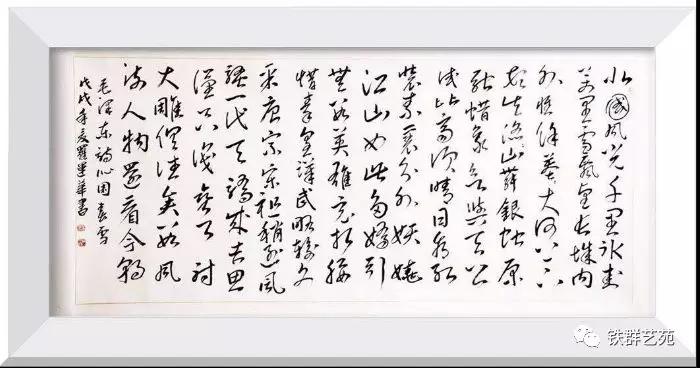 北國风光千里冰封
万里雪飘望长城内
外惟馀莽大河上下
顿失滔山舞銀蛇原
驰蜡象欲與天公
试比高须晴日看红
装素裹分外妖娆
江山如此多嬌引
無数英雄竞折腰
惜秦皇漢武略输文
采唐宗宋祖稍逊风
骚一代天骄成吉思
汗只识弯弓射
大雕俱往矣数风
流人物還看今朝
毛泽东词沁园春雪
戊戌年夏羅運華书
铁群艺苑